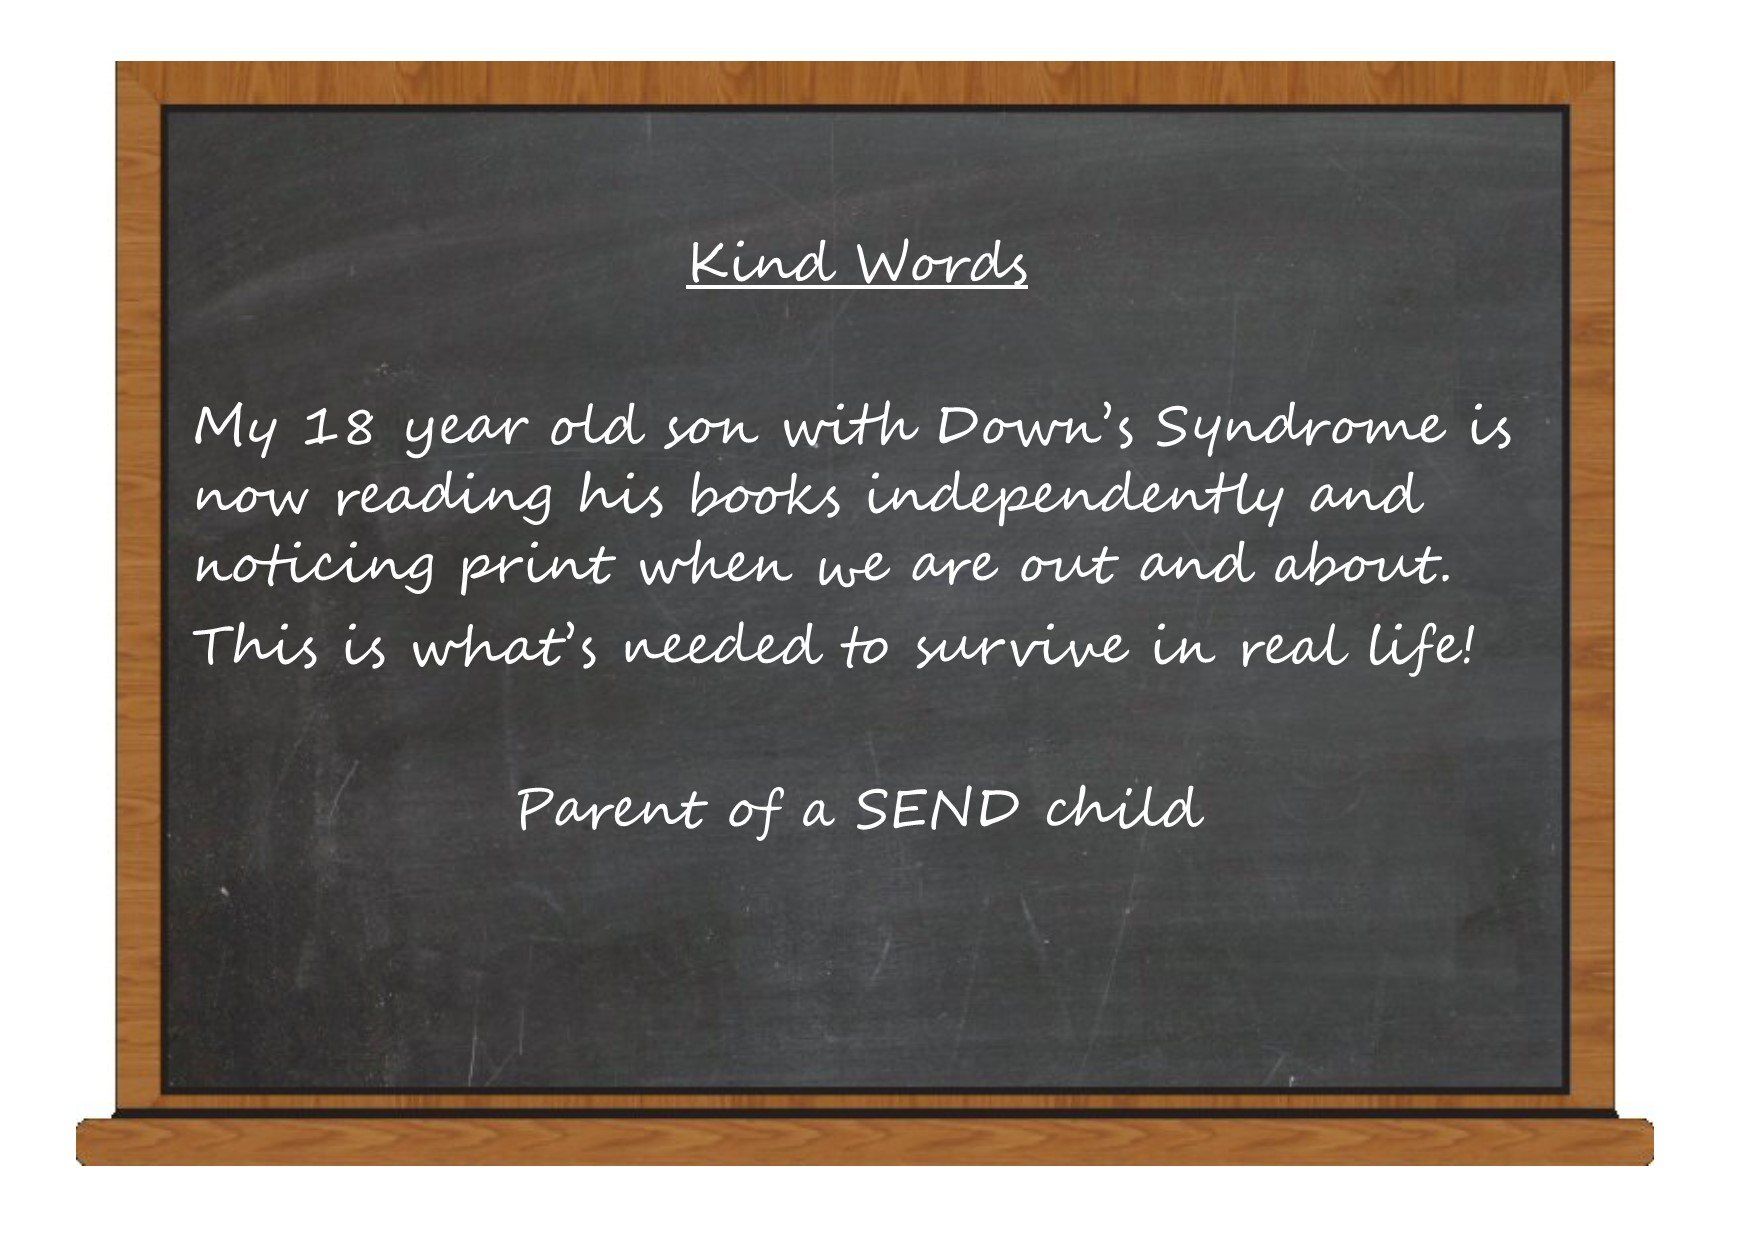 Kind Words
My 18 year old son with Down’s Syndrome is
now reading his books independently and
noticing print when we are out and about.
This is what’s needed to survive in real life!
Parent of a SEND child